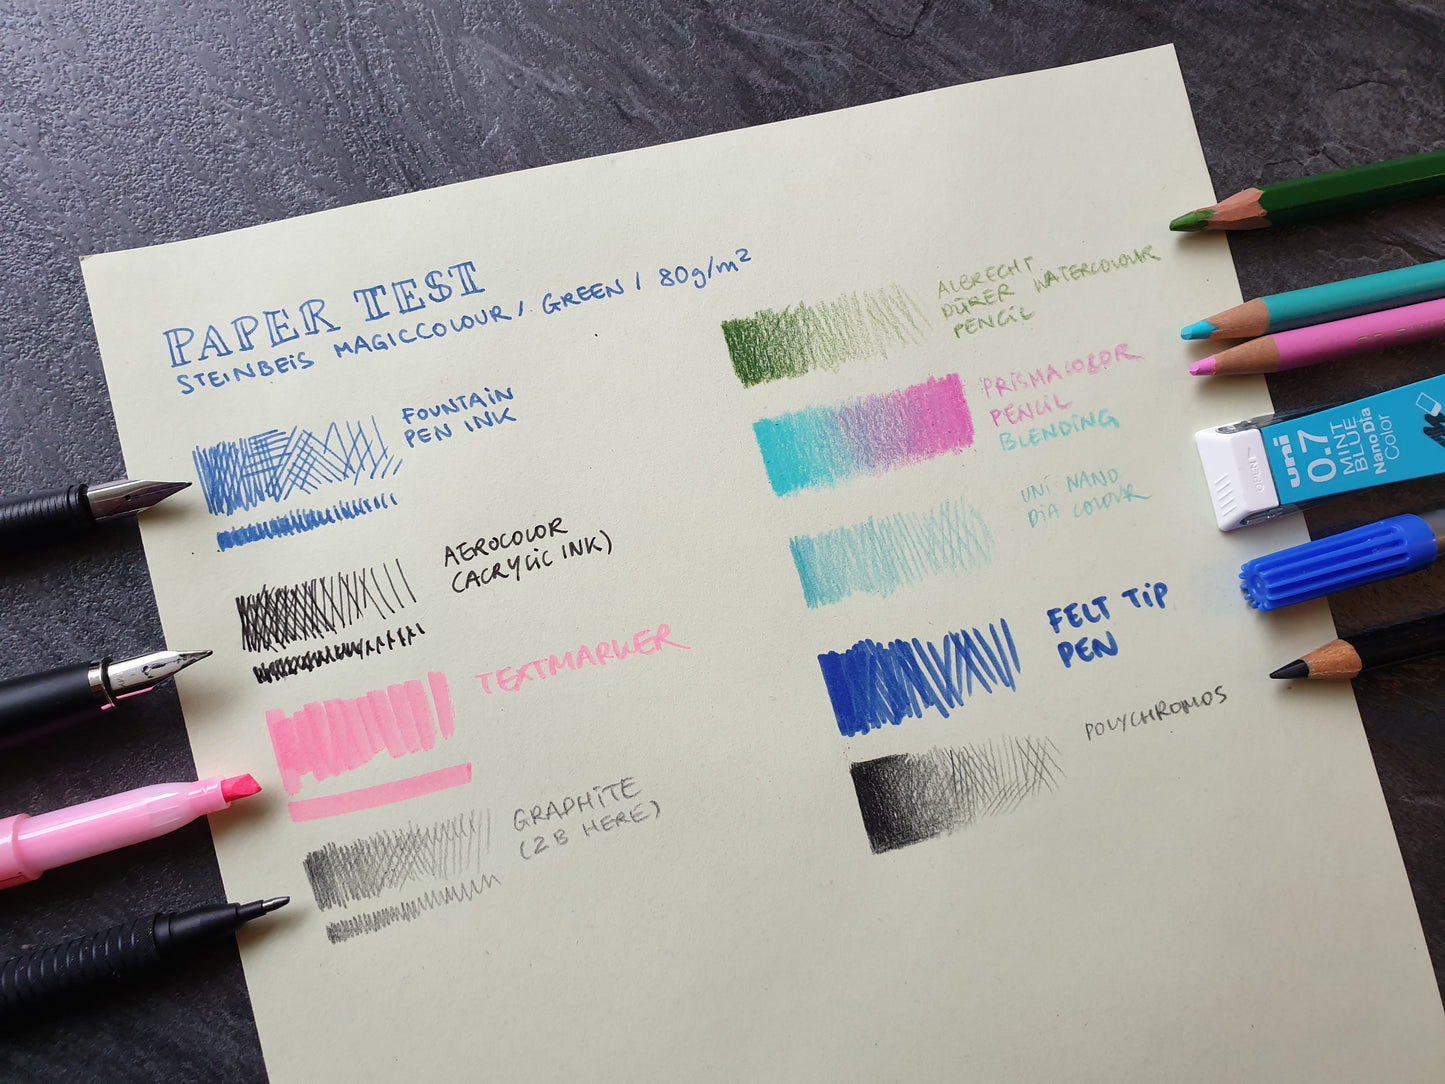 PAPER TEST
STEINBEIS MAGICCOLOUR / GREEN / 80g/m²
FOUNTAIN
PEN INK
AEROCOLOR
(ACRYLIC INK)
TEXTMARKER
GRAPHITE
(2B HERE)
ALBRECHT
DÜRER WATERCOLOUR
PENCIL
PRISMACOLOR
PENCIL
BLENDING
UNI NANO
DIA COLOUR
FELT TIP
PEN
POLYCHROMOS
OPEN
uni
0.7
MINT
BLUE
Nano Dia
Color